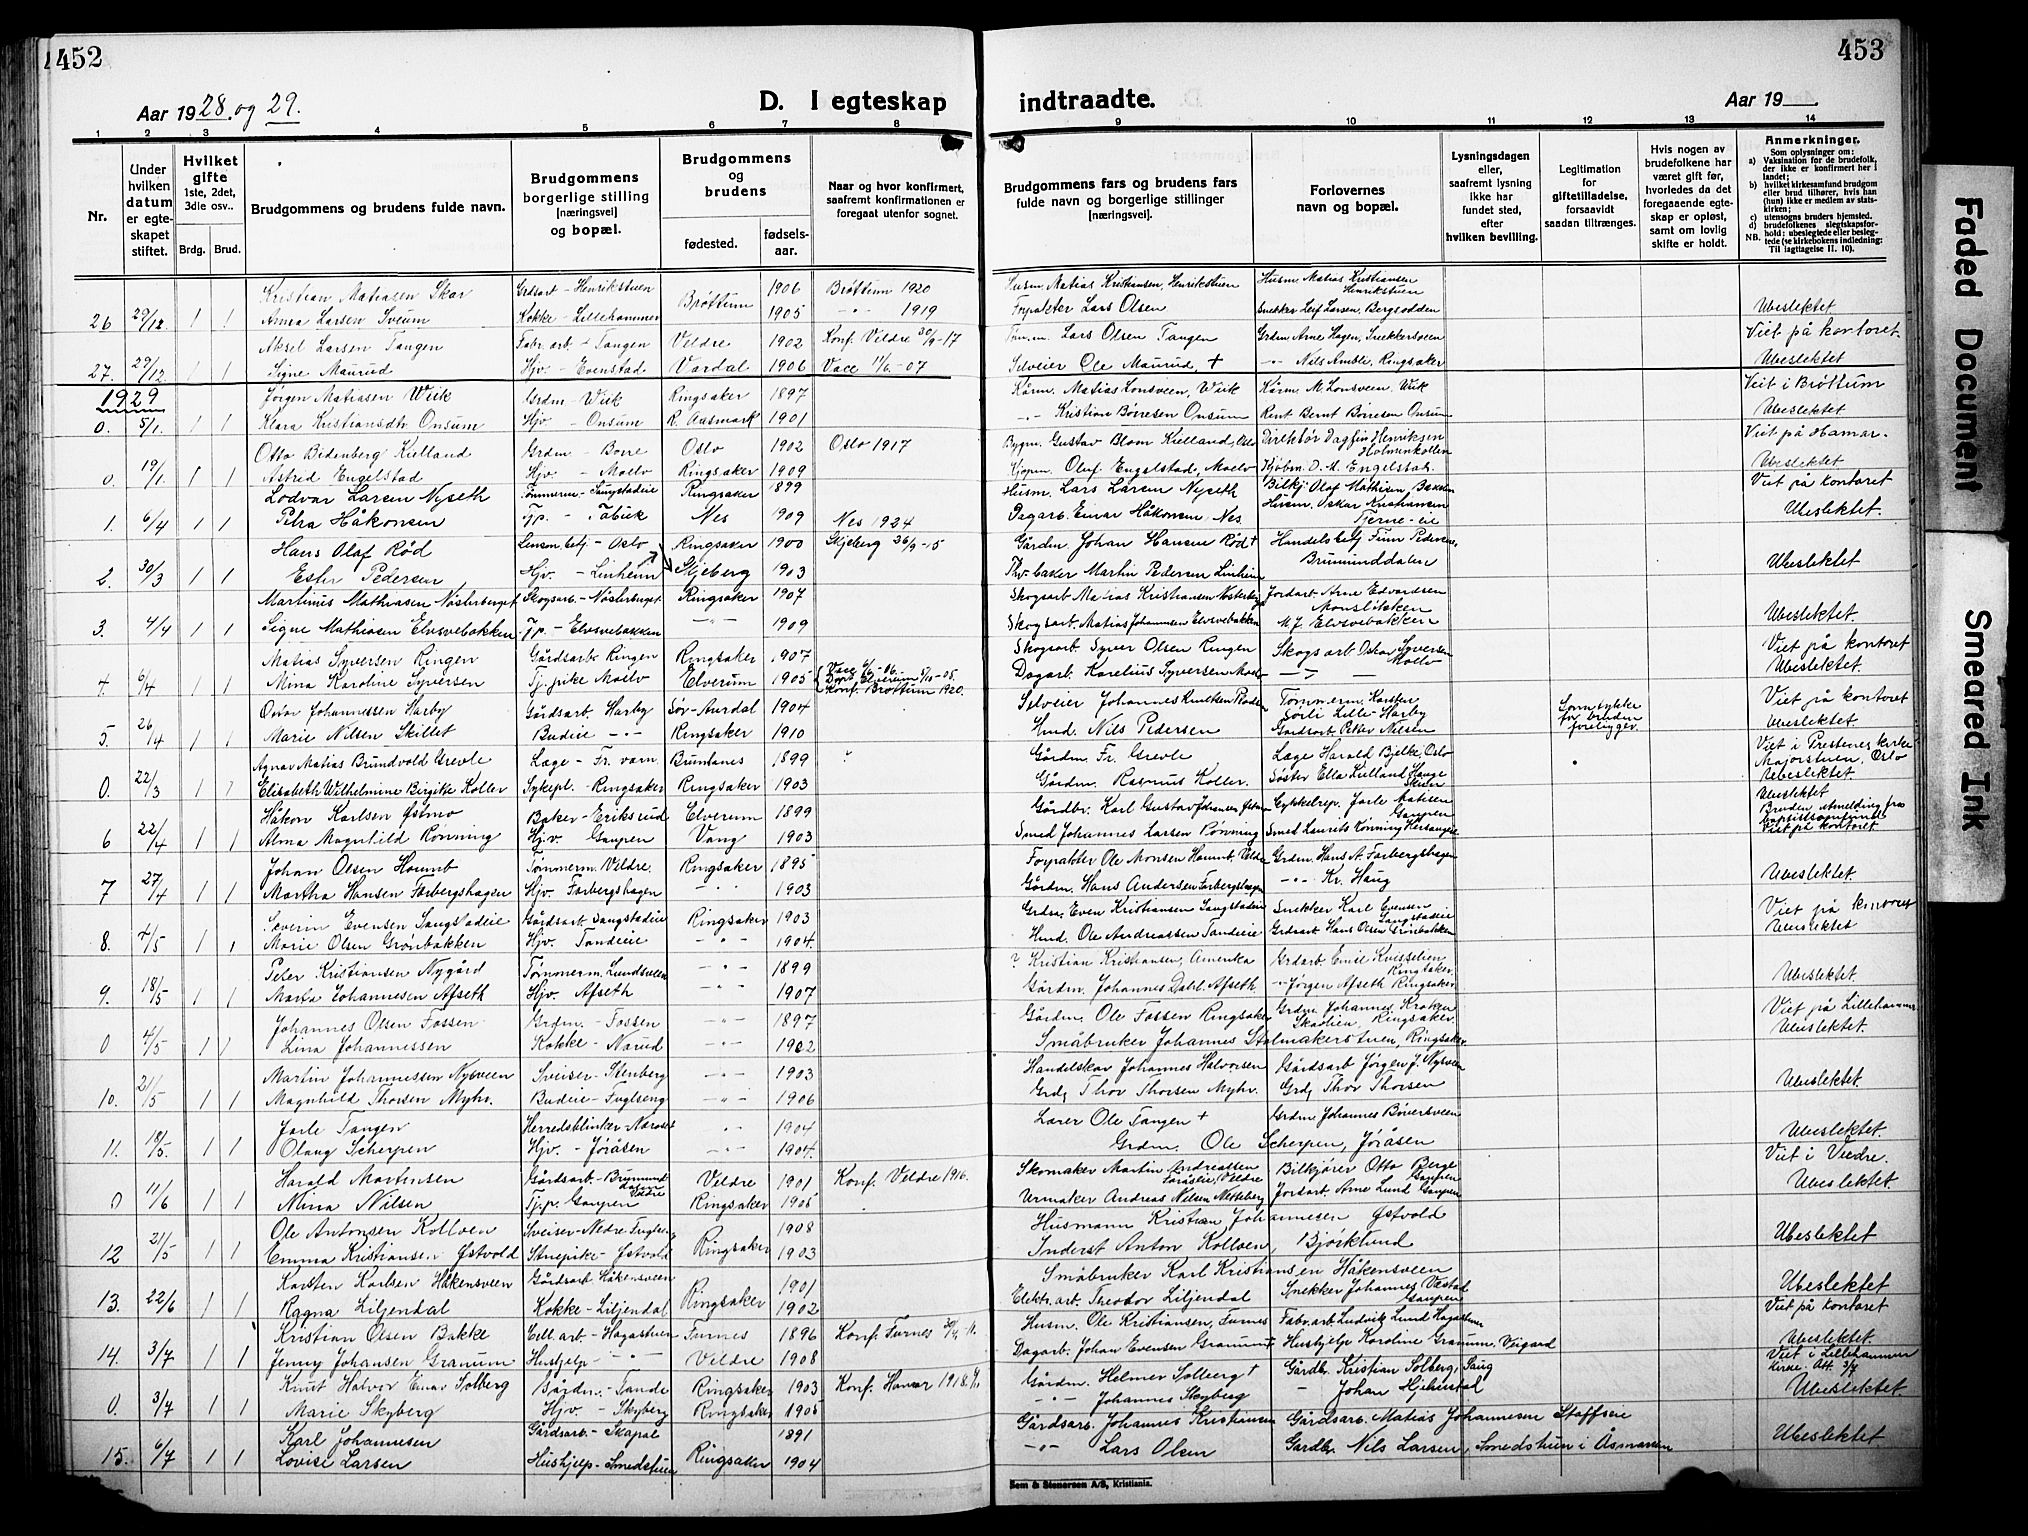 452
453
Aar 1928 og 29.
D. I egteskap
indtraadte.
Aar 19
1 2 3 4 5 6 7 8 9 10 11 12 13 14
Nr.
Under hvilken datum er egteskapet stiftet.
Hvilket gifte 1ste, 2det, 3die osv..
Brdg. Brud.
Brudgommens og brudens fulde navn.
Brudgommens borgerlige stilling [næringsvei] og bopæl.
Brudgommens og brudens
fødested.
fødselsaar.
Naar og hvor konfirmert, saafremt konfirmationen er foregaat utenfor sognet.
Brudgommens fars og brudens fars fulde navn og borgerlige stillinger [næringsvei].
Forlovernes navn og bopæl.
Lysningsdagen eller, saafremt lysning ikke har fundet sted, efter hvilken bevilling.
Legitimation for giftetilladelse, forsaavidt saadan tiltrænges.
Hvis nogen av brudefolkene har været gift før, hvorledes da det foregaaende egteskap er opløst, samt om lovlig skifte er holdt.
Anmerkninger.
Som oplysninger om:
a) Vaksination for de brudefolk, der ikke er konfirmert her i landet;
b) hvilket kirkesamfund brudgom eller brud tilhører, hvis han (hun) ikke er medlem av statskirken;
c) utensogns bruders hjemsted.
d) brudefolkenes slegtskapsforhold: ubeslegtede eller beslegtede (se kirkebokens indledning:
NB. Til iagttagelse II. 10).
Kristian Matiasen Skar Grdsarb - Henrikstuen 1906 Brøttum 1920 Husm. Matias Kristiansen, Henrikstuen Husm. Matias Kristiansen Henrikstuen
26 29/12. 1 1 Anna Larsen Sveum Kokke - Lillehammer Brøttum 1905 -"- 1919 Forpakter Lars Olsen Snekker Leif Larsen, Bergsodden Ubeslektet
Aksel Larsen Tangen Fabr. arb - Tangen Veldre 1902 Konf. Veldre 30/9-17 Lars Olsen Tangen Grdm Arne Hagen, Snekkersveen Viet på kontoret
27. 29/12. 1 1 Signe Maurud Hjv - Evenstad Vardal 1906 Vacc 11/6-07 Selveier Ole Maurud + -"- Nils Amble, Ringsaker Ubeslektet
1929
Jørgen Matiasen Wiik Grdm - Wiik Ringsaker 1897 Kårm. Matias Lonsveen, Wiik Kårm M. Lonsveen, Wiik Viet i Brøttum
0. 5/1. 1 1 Klara Kristiansdtr Onsum Hjv - Onsum R. Aasmark 1901 -"- Kristian Børresen Onsum Rent Bernt Børresen Onsum Ubeslektet
Otto Bidenberg Kielland Grdm - Borre Oslo 1902 Oslo 1917 Bygm. Gustav Blom Kielland, Oslo Direktør Dagfin Henriksen Holmenkollen Viet på Hamar.
0. 19/1. 1 1 Astrid Engelstad Hjv. - Moelv Ringsaker 1909 Kjøpm. Oluf Engelstad, Moelv Kjøbm. O. M. Engelstad. Ubeslektet
Lodvar Larsen Nyseth Tømmerm - Sangstadeie Ringsaker 1899 Husm. Lars Larsen Nyseth Bilkj. Olaf Mathisen Bakken Viet på kontoret
1. 6/4 1 1 Petra Håkonsen Tjp. - Nes 1909 Nes 1924 Dagarb. Einar Håkonsen, Nes Husm. Oskar Kristiansen Tjerne-eie Ubeslektet.
Hans Olaf Rød betj - Oslo Ringsaker 1900 Skjeberg 26/9-15 Gårdm. Johan Hansen Rød + Handelsbetj Finn Pedersen, Brumunddalen
2. 30/3 1 1 Ester Pedersen Hjv. - Linheim Skjeberg 1903 baker Martin Pedersen Linheim Ubeslektet
Martinus Mathiasen Nøsterberget Skogsarb. - Nøsterberget Ringsaker 1907 Skogsarb Matias Kristiansen Nøsterberget Jordarb Arne Edvardsen Monsløkken
3. 4/4 1 1 Signe Mathiasen Elvsvebakken Tjp. - Elvsvebakken -"- 1909 Skogsarb. Matias Johannesen Elvsvebakken M. J. Elvsvebakken Ubeslektet
Matias Syversen Ringen Gårdsarb Ringen Ringsaker 1907 Skogsarb. Syver Olsen Ringen Skogsarb Oskar Syversen Moelv Viet på kontoret
4. 6/4 1 1 Mina Karoline Syversen Tj.pike Moelv Elverum 1905 Vacc Døpt Elverum -05. Konf. Brøttum 1920. Dagarb. Karelius Syversen Moelv Ubeslektet.
Oskar Johannessen Harby Gårdsarb. Harby Sør-Aurdal 1904 Selveier Johannes Knutsen Tømmerm. Karsten Sørli Lille-Harby for bruden foreligger. Viet på kontoret
5. 26/4 1 1 Marie Nilsen Skillet Budeie -"- Ringsaker 1910 Hmd. Nils Pedersen Gårdsarb Petter Nilsen Ubeslektet
Matias Brundvold Grevle Læge - Fr. varn Bumlanes 1899 Gårdm. Fr. Grevle Læge Harald Bjelke, Oslo Viet i Prestenes kirke Majorstuen, Oslo
0. 22/3 1 1 Elisabeth Wilhelmine Birgitte Koller Sykepl. - Ringsaker Ringsaker 1903 Gårdm. Rasmus Koller Søster Ella Lilland Hauge Skien Ubeslektet
Håkon Karlsen Østmo Baker - Eriksrud Elverum 1899 Gårdbr. Karl Gustav Johansen Østmo Cykkelrep. Jarle Mathisen Gaupen Ubeslektet Bruden utmelding fra baptistsamfundet
6 22/4 1 1 Alma Magnhild Rønning Hjv. Gaupen Vang 1903 Smed Johannes Larsen Rønning Smed Laurits Rønning Viet på kontoret
Johan Olsen Houmb Tømmerm. Veldre. Ringsaker 1895 Forpakter Ole Monsen Houmb. Veldre Grdm. Hans A. Farbergshagen
7 27/4 1 1 Martha Hansen Farbergshagen Hjv. Farbergshagen -"- 1903 Gårdm. Hans Andersen Farbergshagen -"- Kr. Haug Ubeslektet.
Severin Evensen Sangstadeie Gårdsarb Sangstadeie Ringsaker 1903 Grdsa. Even Kristiansen Sangstadeie Snekker Karl Evensen Sangstadeie Viet på kontoret
8. 7/5 1 1 Marie Olsen Grønbakken Hjv. Tandeeie -"- 1904. Hmd. Ole Andreassen Tandeeie Grdsarb Hans Olsen Grønbakken Ubeslektet
Peter Kristiansen Nygård Tømmerm. Lundsveen -"- 1899 ? Kristian Kristiansen, Amerika Grdarb. Emil Kvisselien Ringsaker.
9. 18/5 1 1 Marta Johannesen Afseth Hjv. Afseth -"- 1907 Gårdm. Johannes Dahl. Afseth. -"- Jørgen Afseth Ringsaker. Ubeslektet.
Johannes Olsen Fossen Grdm. - Fossen -"- 1897 Gårdm. Ole Fossen Ringsaker Grdm. Johannes Kroken Skarlien, Ringsaker. Viet på Lillehammer
0 4/5 1 1 Lina Johannessen Kokke - Narud -"- 1902 Småbruker Johannes Stalmakerstuen, Ringsaker Ubeslektet.
Martin Johannessen Nysveen Sveiser - Stenberg -"- 1903 Handelskar Johannes Halvorsen Gårdsarb Jørgen J. Nysveen
10. 21/5 1 1 Magnhild Thorsen Myhr. Budeie - Fuglseng -"- 1906 Grdg Thor Thorsen Myhr. Grdg Thor Thorsen Ubeslektet.
Jarle Tangen Herredsblinker -"- 1904 Lærer Ole Tangen + Grdm Johannes Bøversveen
11. 18/5. 1 1 Olaug Scherpen Hjv. - Jøråsen -"- 1904. Grdm. Ole Scherpen, Jøråsen Ubeslektet.
Harald Martinsen Gårdsarb. Brumunddalen Veldre Veldre 1901 Konf. Veldre 1916. Skomaker Martin Andreassen Veldre Bilkjører Otto Berge Gaupen Viet i Veldre.
0 11/6 1 1 Mina Nilsen Tjp. Gaupen Ringsaker 1905 Urmaker Andreas Nilsen Netteberg Jordarb. Arne Lund Gaupen Ubeslektet
Ole Antonsen Kolloen Sveiser - Nedre Fuglseng 1908 Husmann Kristian Johannesen Østvold
12 21/5 1 1 Emma Kristiansen Østvold Stuepike - Østvold Ringsaker 1903 Inderst Anton Kolloen, Bjørklund Ubeslektet
Karsten Karlsen Håkensveen Gårdsarb Håkensveen 1901 Småbruker Karl Kristiansen Håkensveen
13. 22/6 1 1 Ragna Liljendal Kokke - Liljendal Ringsaker 1902 Elektr. arb. Theodor Liljendal Snekker Johannes Vestad Gaupen Ubeslektet
Kristian Olsen Bakke Cell. arb. - Hagastuen Furnes 1896 Konf. Furnes Husm. Ole Kristiansen, Furnes Fabr. arb. Ludvik Lund Hagastuen Viet på kontoret
14. 3/7 1 1 Jenny Johansen Granum Hushjelp -"- Veldre 1908 Dagarb. Johan Evensen Granum + Hushjelp Karoline Granum, Veigard Ubeslektet.
Knut Halvor Einar Solberg Gårdm. - Tande Ringsaker 1903 Konf. Hamar 1918. Gårdm. Helmer Solberg + Gårdb. Kristian Solberg, Saug Viet i Lillehammer kirke. Att. 3/7
0. 3/7 1 1 Marie Skyberg Hjv. - Skyberg Ringsaker 1905 -"- Johannes Skyberg -"- Johan Hjelmstad Ubeslektet
Karl Johannesen Gårdsarb. - Skapal 1891 Gårdsarb. Johannes Kristiansen Gårdsarb. Matias Johannesen Staffseie
15. 6/7 1 1 Lovise Larsen Hushjelp - Smedstuen Ringsaker 1904 -"- Lars Olsen Gardbr. Nils Larsen, Smedstuen i Åsmarken Ubeslektet
Sem & Stenersen A/S, Kristiania.
Faded Document
Smeared Ink